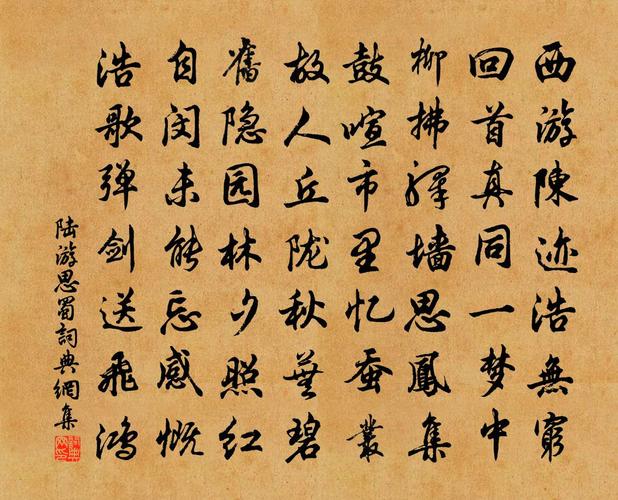 西游陳迹浩無窮
回首真同一梦中
柳拂驛墙思鳳集
鼓喧市里忆蚕叢
故人丘陇秋蕪碧
舊隐园林夕照红
自闵未能忘感慨
浩歌弹剑送飛鸿
陆游思蜀詞典網集